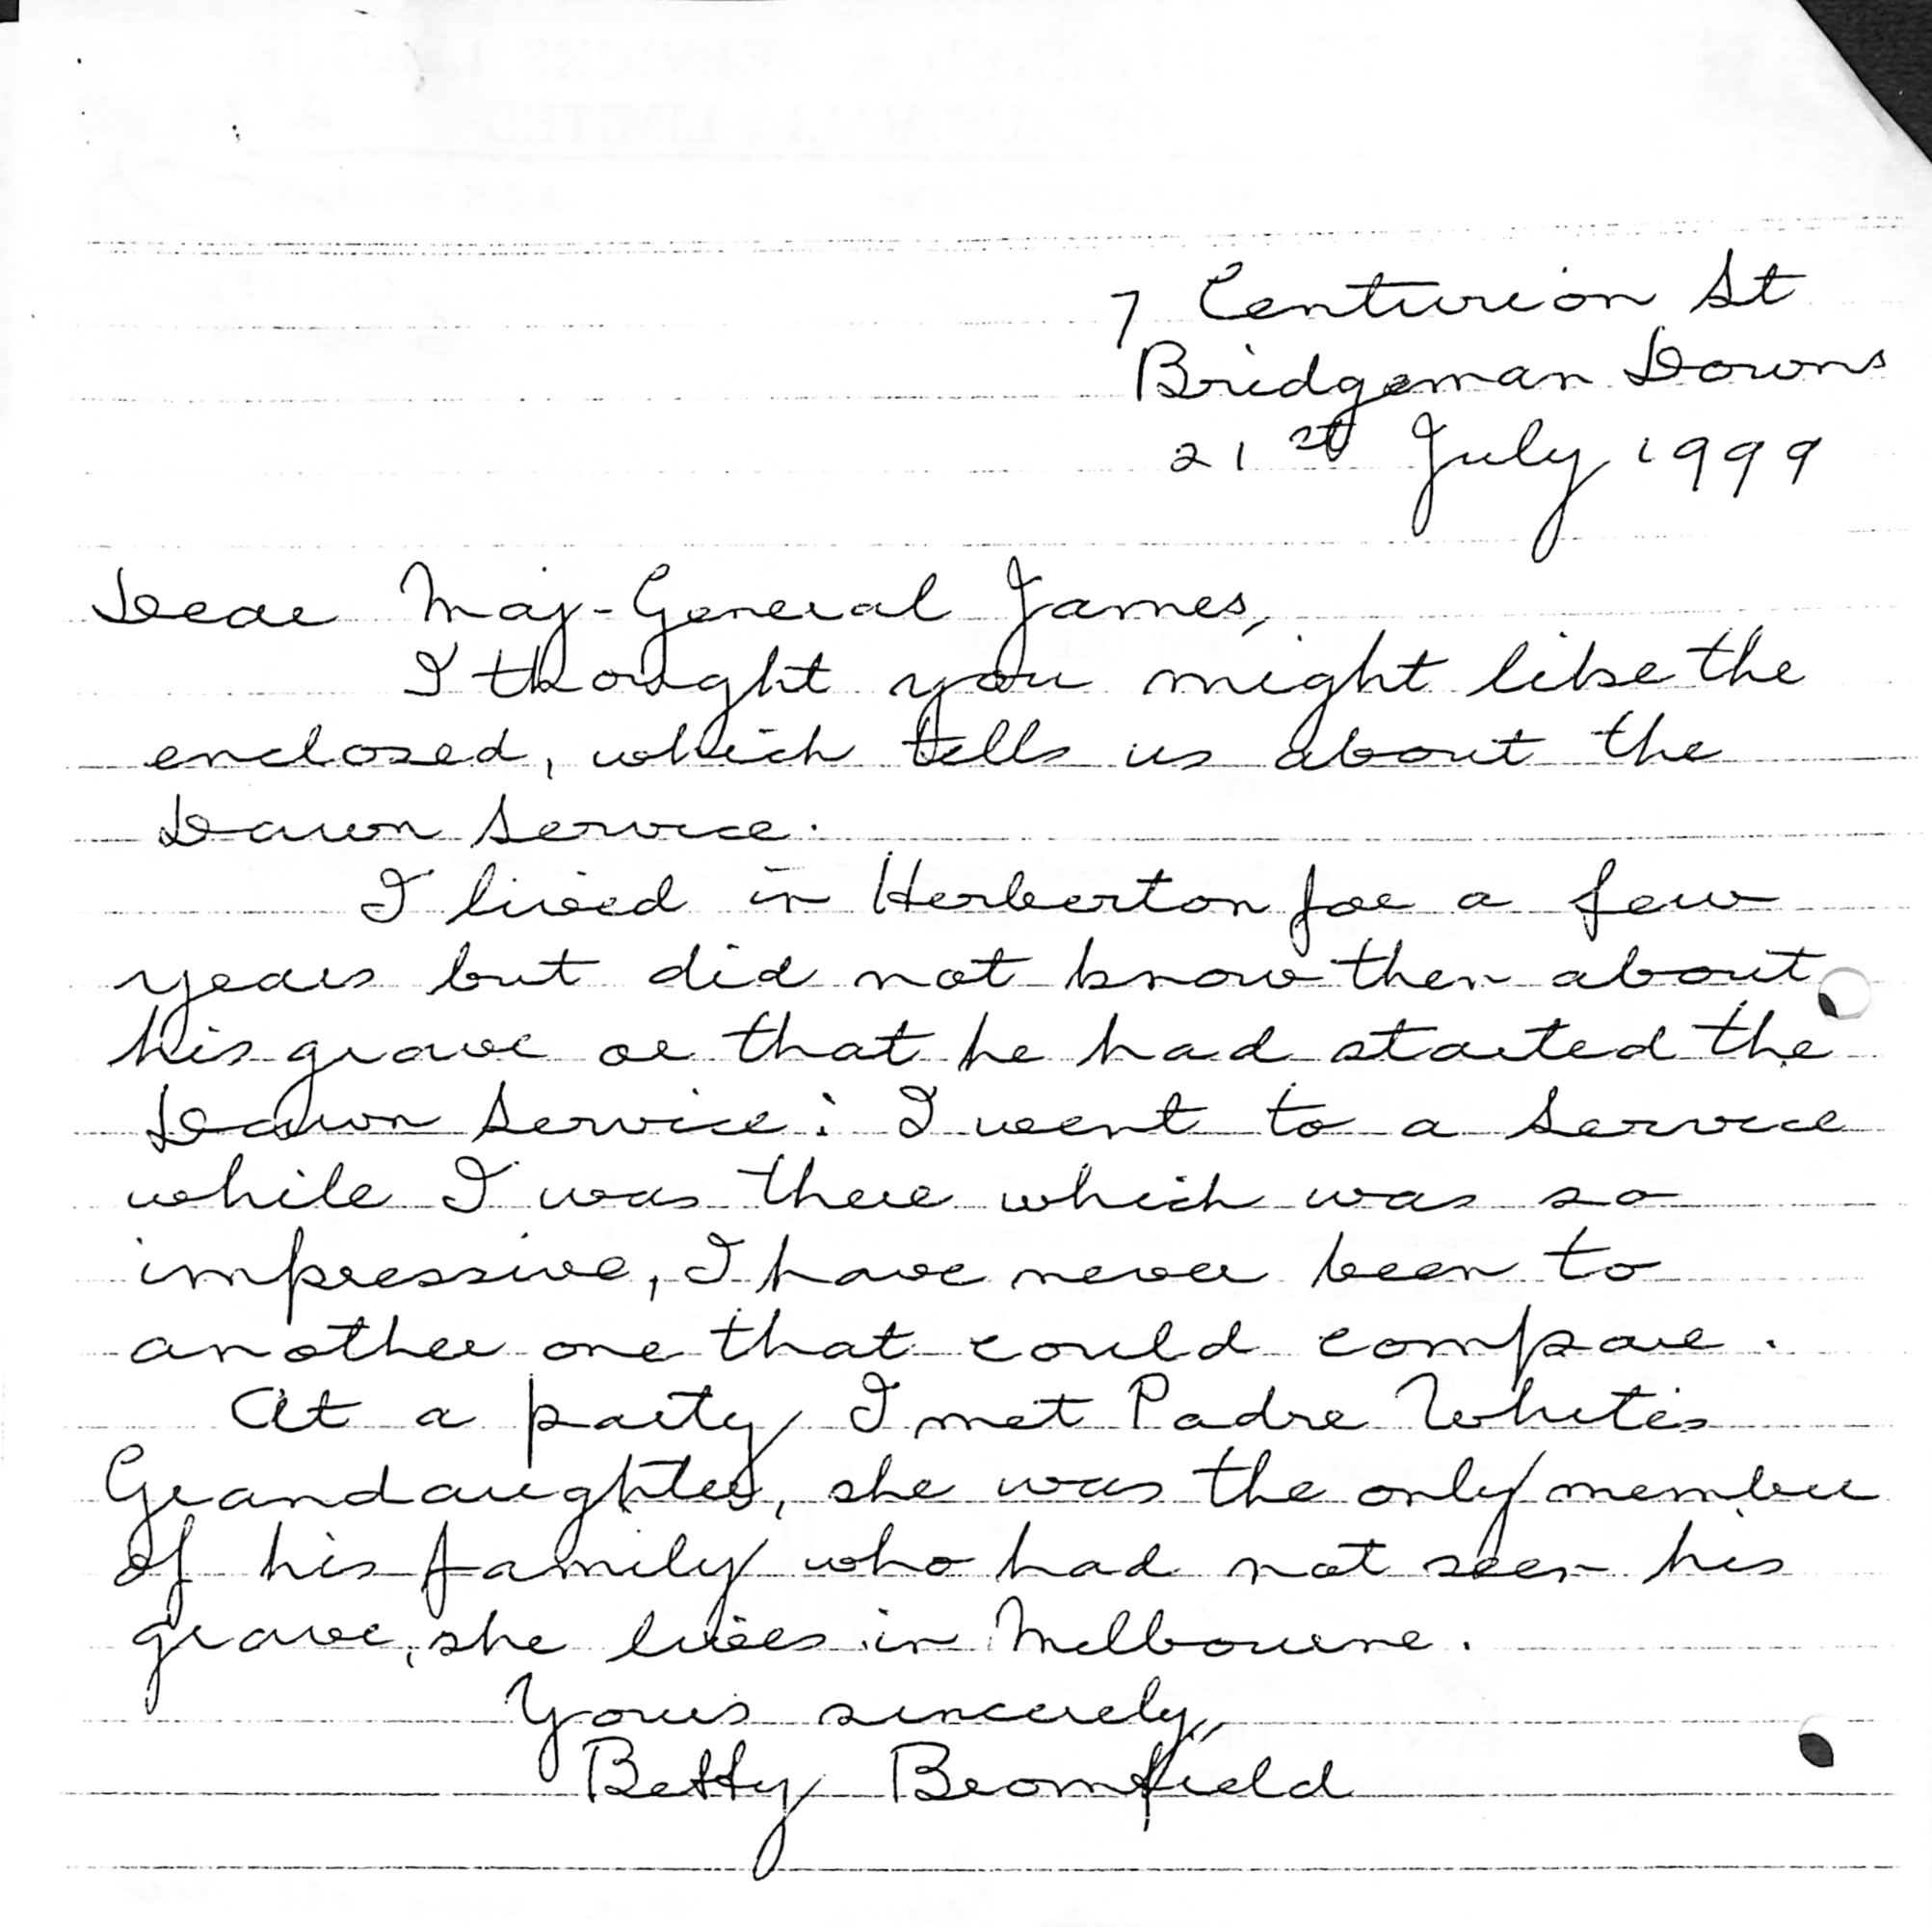 7 Centurion St
Bridgeman Downs
21st July 1999
Dear Maj-General James,
I thought you might like the
enclosed, which tells us about the
Dawn Service.
I lived in Herberton for a few
years but did not know then about
his grave or that he had started the
Dawn Service: I went to a Service
while I was there which was so
impressive, I have never been to
another one that could compare.
At a party I met Padre White's
Grandaughter, she was the only member
of his family who had not seen his
grave, she lives in Melbourne.
Yours sincerely,
Betty Bromfield